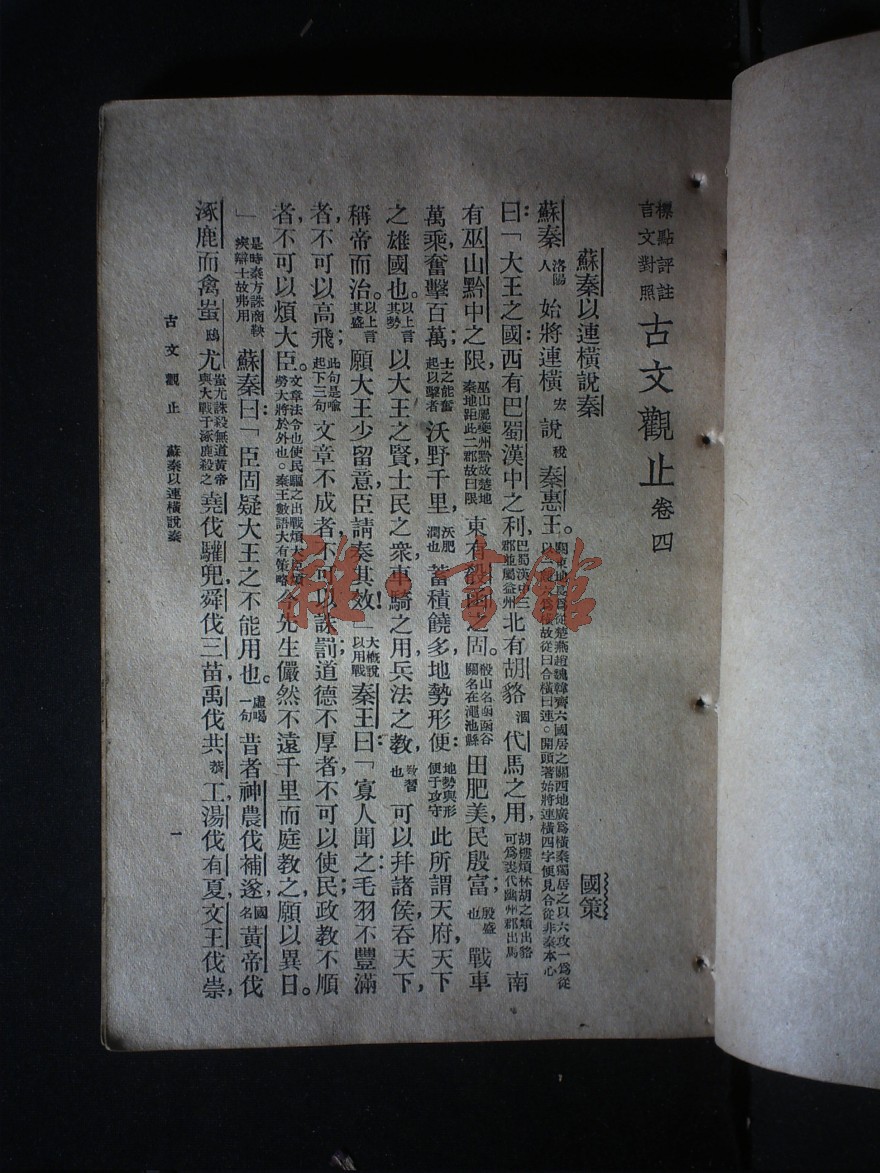 言文對照 標點評註 古文觀止 卷四
蘇秦以連橫說秦 國策
蘇秦 洛陽人 始將連橫 宏 說 稅 秦惠王。 關東地長爲從楚燕趙魏韓齊六國居之關西地廣爲橫秦獨居之以六攻一爲從 故從曰合橫曰連。開頭著始將連橫四字便見合從非秦本心
曰:「大王之國西有巴蜀漢中之利, 巴蜀漢中三郡並屬益州 北有胡貉 涸 代馬之用, 胡樓煩林胡之類出貉可爲裘代幽州郡出馬 南
有巫山黔中之限, 巫山屬夔州黔故楚地秦地距此二郡故曰限 東有殽函之固。 殽山名函函谷關名在澠池縣 田肥美民殷富; 殷盛也 戰車
萬乘奮擊百萬 士之能奮起以擊者 沃野千里, 沃肥潤也 蓄積饒多地勢形便: 地勢與形便于攻守 此所謂天府,天下
之雄國也。 以上言其勢 以大王之賢士民之衆車騎之用兵法之教 教習也 可以幷諸侯,吞天下,
稱帝而治。 以上言其盛 願大王少留意,臣請奏其效!」 大槪說以用戰 秦王曰:「寡人聞之毛羽不豐滿
者不可以高飛; 此句是喩起下三句 文章不成者不可以誅罰;道德不厚者不可以使民;政教不順
者,不可以煩大臣。 文章法令也使民驅之出戰煩大臣煩勞大將於外也。秦王數語大有策略 今先生儼然不遠千里而庭教之,願以異日。
」 是時秦方誅商鞅疾辯士故弗用 蘇秦曰:「臣固疑大王之不能用也。 虛喝一句 昔者神農伐補遂, 國名 黃帝伐
涿鹿而禽蚩 鴟 尤, 蚩尤誅殺無道黃帝與大戰于涿鹿殺之 堯伐驩兜,舜伐三苗,禹伐共 恭 工,湯伐有夏,文王伐崇,
古文觀止 蘇秦以連橫說秦 一
雜·書館